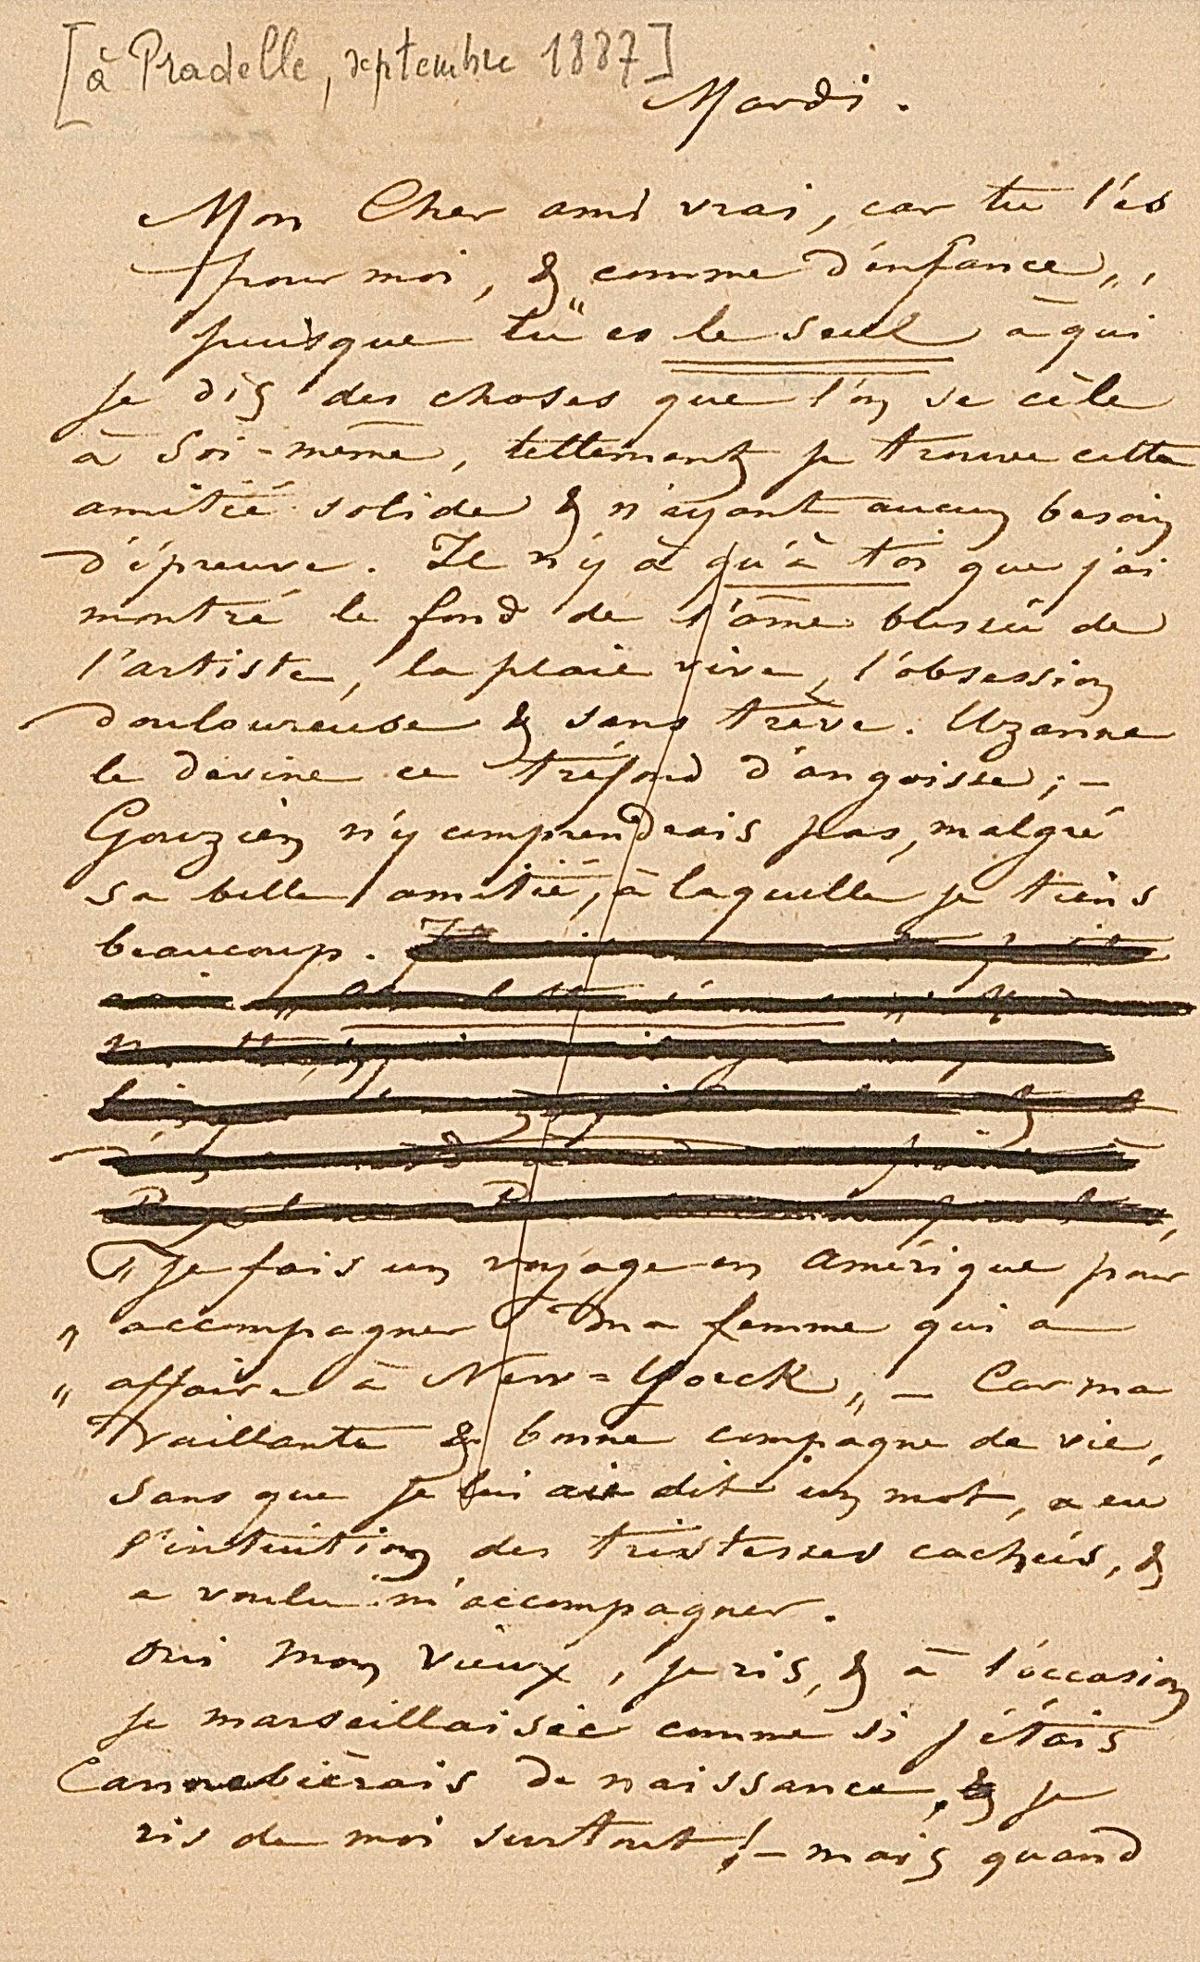 [à Pradelle, septembre 1887]
Mardi.
Mon Cher ami vrai, car tu l'es
pour moi, & comme d'enfance,,,
puisque tu" es le seul à qui
je dis des choses que l'on se cèle
à soi-même, tellement je trouve cette
amitié solide & n'ayant aucun besoin
d'épreuve. Il n'y a qu'à toi que j'ai
montré le fond de l'âme blessée de
l'artiste, la plaie vive, l'obsession
douloureuse & sans trève. Uzanne
le devine ce tréfond d'angoisse; —
Gouzien n'y comprendrais pas, malgré
sa belle amitié, à laquelle je tiens
beaucoup.
"je fais un voyage en Amérique pour
" accompagner ma femme qui a
" affaire à New=Yorck," — Car ma
vaillante & bonne compagne de vie,
sans que je lui aie dit un mot, a eu
l'intuition des tristesses cachées, &
a voulu m'accompagner.
Oui mon vieux, je ris, & à l'occasion
je marseillaisie comme si j'étais
Cannebièrais de naissance, & je
ris de moi surtout! — mais quand